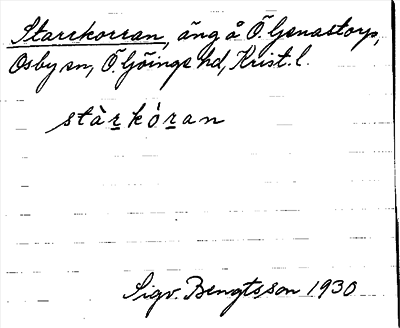 Starrkorran, äng å Ö. Genastorp,
Osby sn, Ö. Göinge hd, Krist. l.
stàṟkóṟan
Sigv. Bengtsson 1930